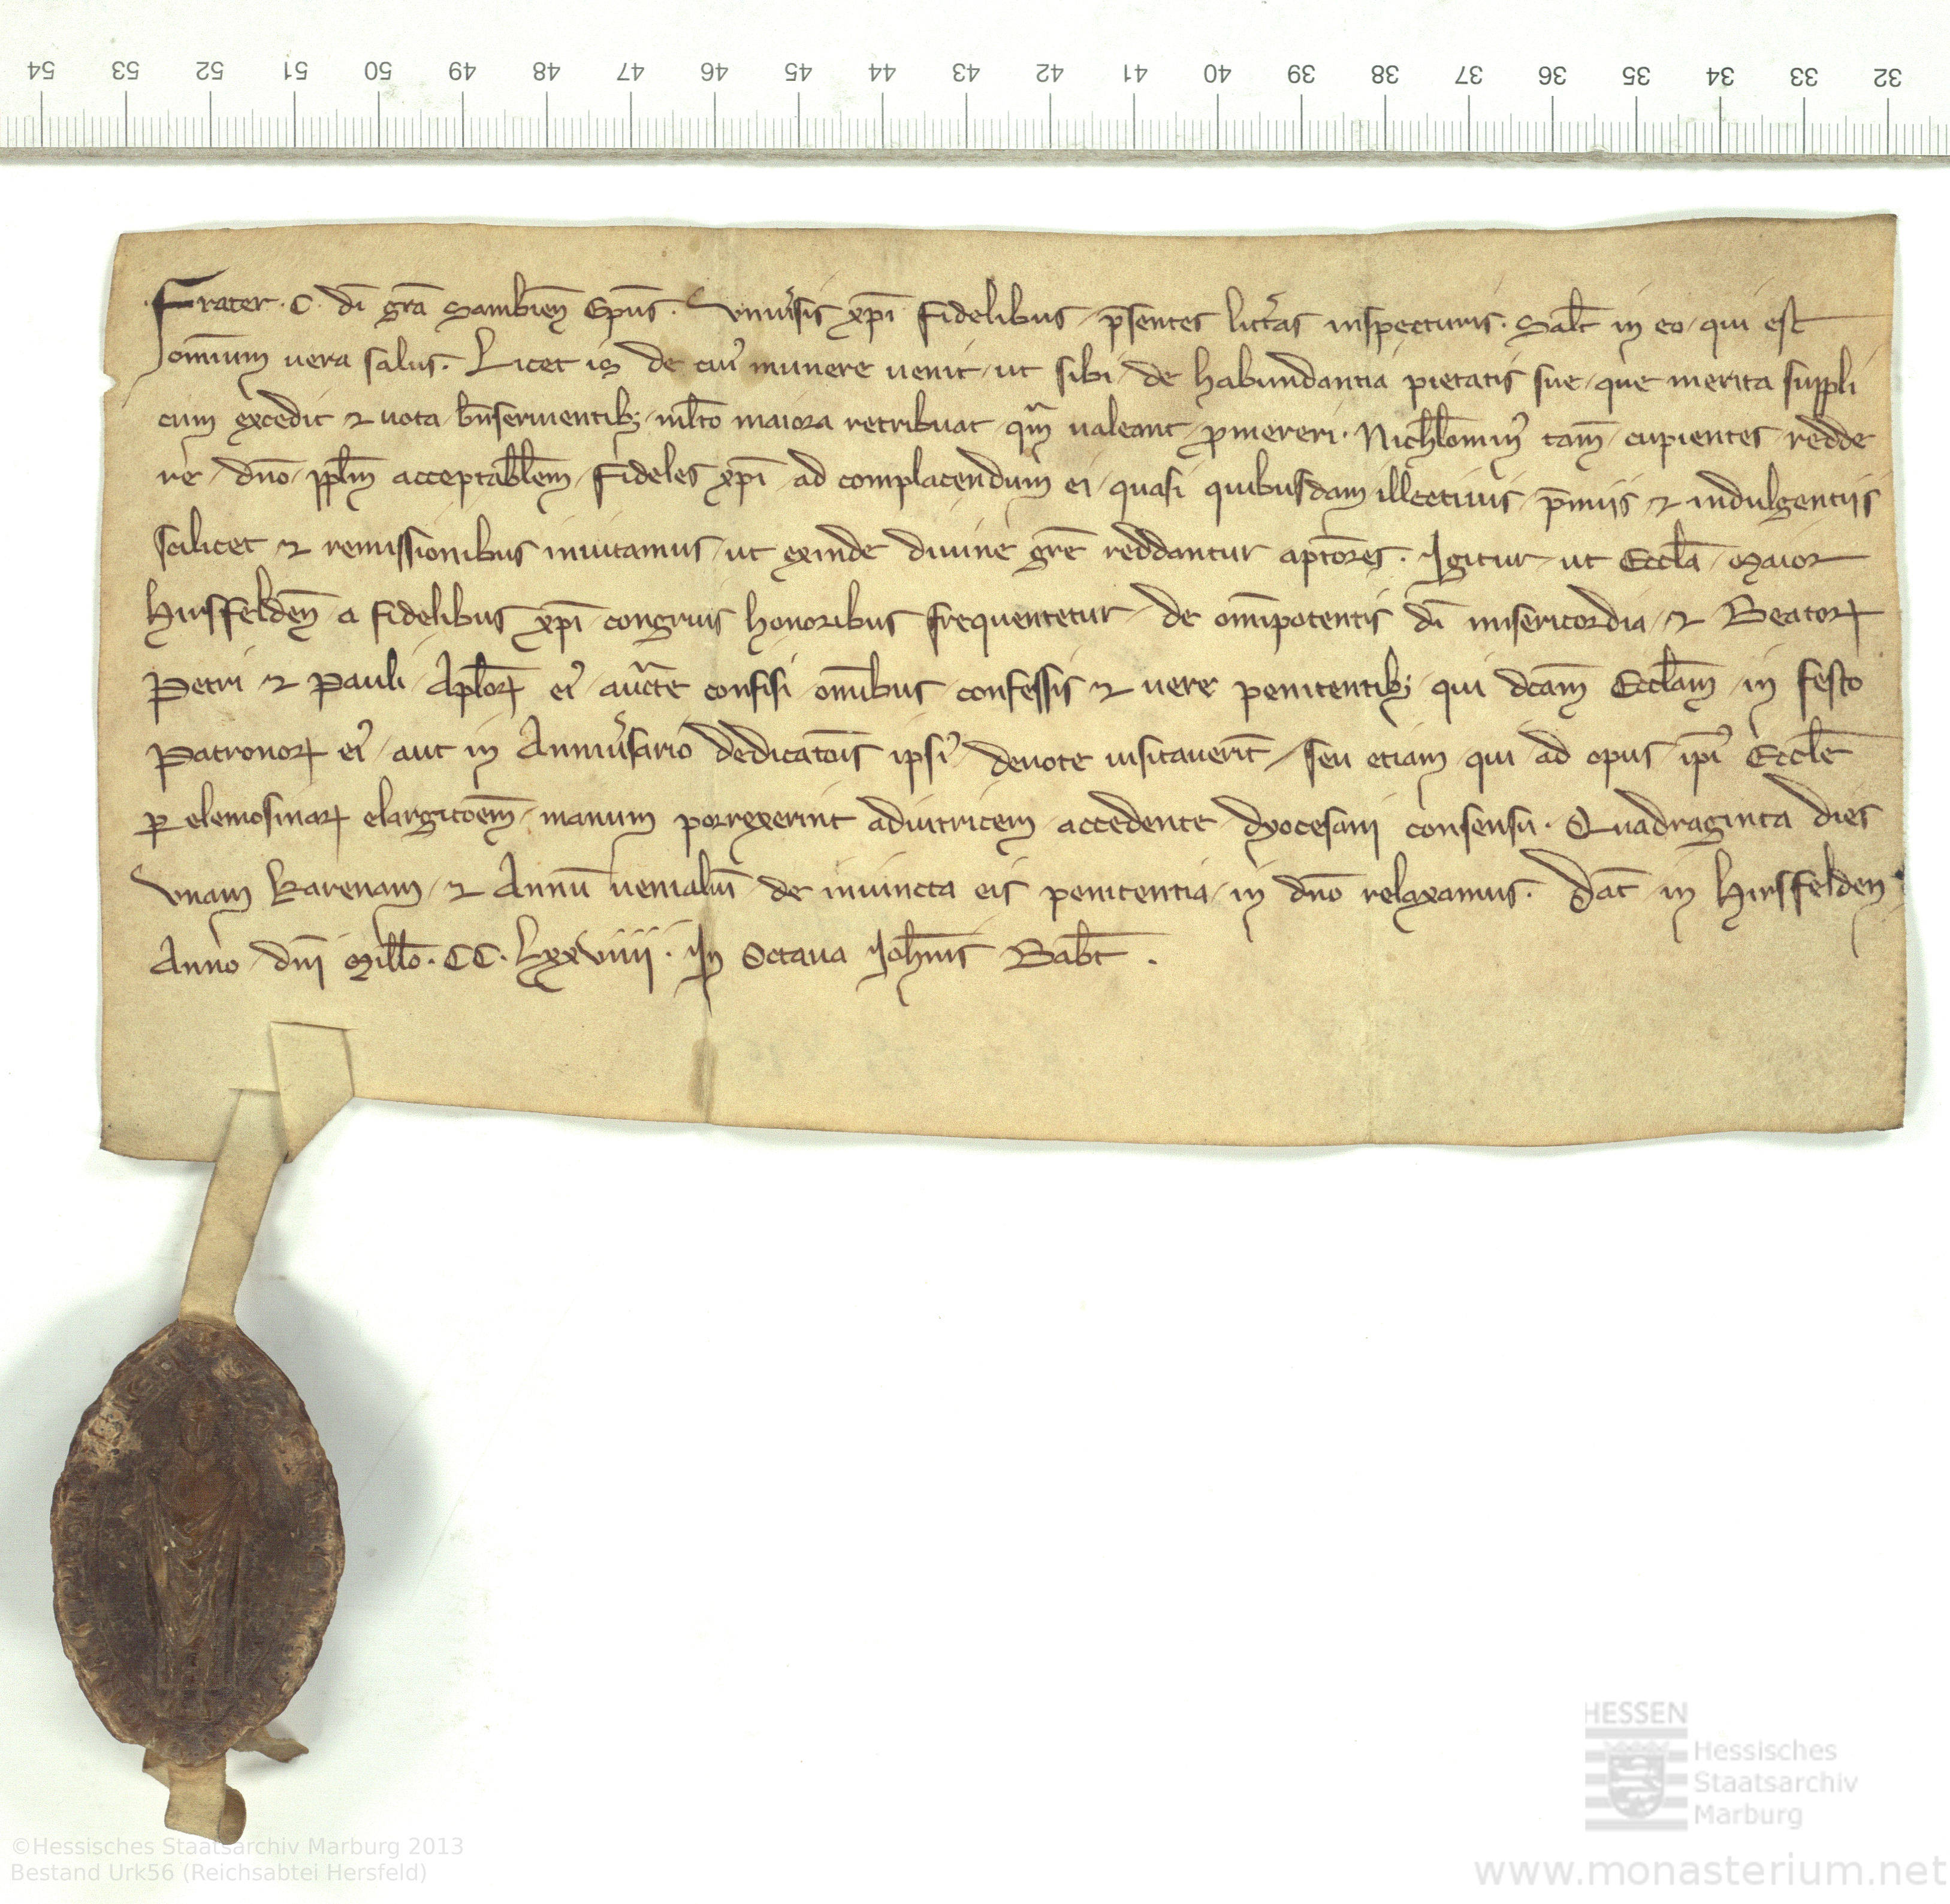 54 53 52 51 50 49 48 47 46 45 44 43 42 41 40 39 38 37 36 35 34 33 32
Frater · C · dī grā Sambien̄ Ep̄us · Vniu͛sis xp̄i fidelibus p̄sentes litt͛as inspecturis · Salt̄ in eo qui est
om̄ium uera salus · Licet is de cuiꝰ munere uenit ut sibi de habundantia pietatis sue que merita suppli
cum excedit ⁊ uota bn̄seruientib; ml̄to maiora retribuat qm̄ ualeant ꝓmereri · Nichl̄ominꝰ tam̄ cupientes redde
re dn̄o ppl̄m acceptabl̄em fideles xp̄i ad complacendum ei quasi quibusdam illectiuis p̄miis ⁊ indulgentiis
scilicet ⁊ remissionibus inuitamus ut exinde diuine grē reddantur aptōres · Igitur ut Eccl̄a Maior
Hirsfelden̄ a fidelibus xp̄i congruis honoribus frequentetur de om̄ipotentis dī misericordia ⁊ Beatoꝝ
Petri ⁊ Pauli Apl̄oꝝ eiꝰ auc̄te confisi om̄ibus confessis ⁊ uere penitentib; qui dc̄am Eccl̄am in festo
Patronoꝝ eiꝰ aut in Anniu͛sario dedicatōis ipsiꝰ deuote uisitauerīt seu etiam qui ad opus ip̄iꝰ Eccl̄e
ꝑ elemosinaꝝ elargitōem manum porrexerint adiutricem accedente dyocesani consensu · Quadraginta dies
Vnam karenam ⁊ Annū uenialiū de iniuncta eis penitentia in dn̄o relaxamus · Dat̄ in Hirsfelden
Anno dn̄i Mill̄o · CC · Lxxviiii · In Octaua Joh̄nis Bab̄t ·
HESSEN
Hessisches
Staatsarchiv
Marburg
©Hessisches Staatsarchiv Marburg 2013
Bestand Urk56 (Reichsabtei Hersfeld)
www.monasterium.net